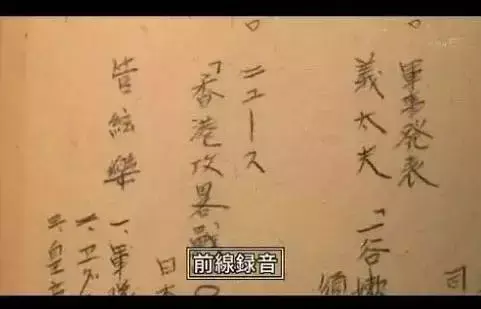 司
。軍事発表
義太夫「一谷嫩
須
。ニュース
「香港攻略戰
日本
管絃樂 一、軍隊
二、ワグ
三、皇
前線録音